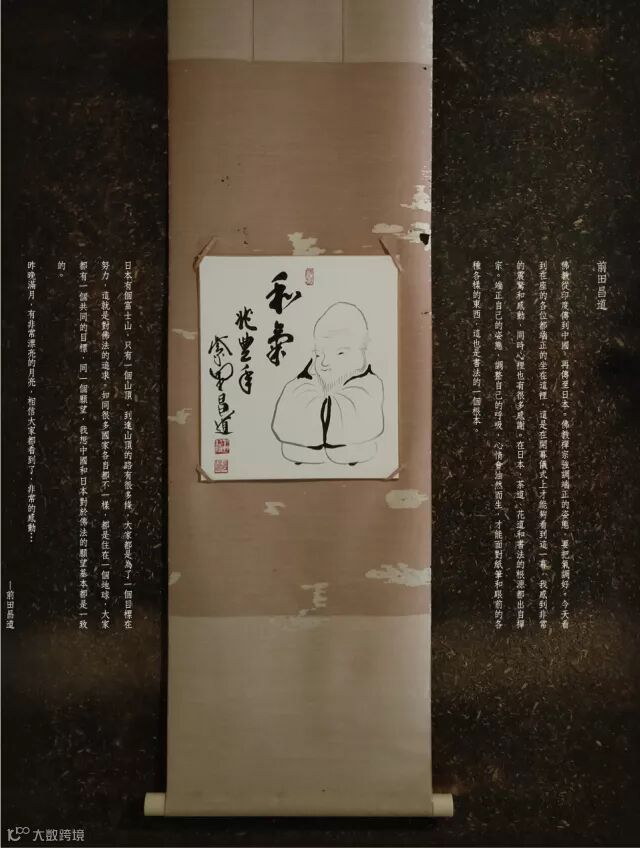 前田昌道
佛教從印度傳到中國，再傳至日本。佛教禪宗強調端正的姿態，要把氣調好。今天看
到在座的各位都端正的坐在這裡，這是在開幕儀式上才能夠看到這一幕，我感到非常
的震驚和感動，同時心裡也有很多感謝。在日本，茶道、花道和書法的根源都出自禪
宗。端正自己的姿態，調整自己的呼吸，心情會油然而生，才能面對紙筆和眼前的各
種各樣的東西，這也是書法的一個根本。
和氣
兆豊年
昌道
日本有個富士山，只有一個山頂，到達山頂的路有很多條，大家都是為了一個目標在
努力，這就是對佛法的追求。如同很多國家各自都不一樣，都是住在一個地球，大家
都有一個共同的目標，同一個願望，我想中國和日本對於佛法的願望基本都是一致
的。
昨晚滿月，有非常漂亮的月亮，相信大家都看到了，非常的感動…
—前田昌道
大数跨境